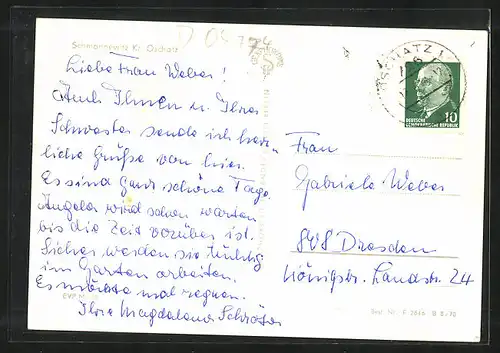 D 04774
Sornmannewitz Kr. Oschatz
OSCHATZ 1
10
DEUTSCHE
DEMOKRATISCHE REPUBLIK
Liebe Frau Weber!
Auch Ihnen u. Ihrer
Schwester sende ich herz-
liche Grüße von hier.
Es sind ganz schöne Tage.
Angela wird schon warten
bis die Zeit vorüber ist.
Sicher werden sie tüchtig
im Garten arbeiten.
Es möchte mal regnen.
Ihre Magdalena Schröter
EVP
Frau
Gabriele Weber
808 Dresden
Königsbr. Landstr. 24
Best. Nr. F 3846 B 8-70